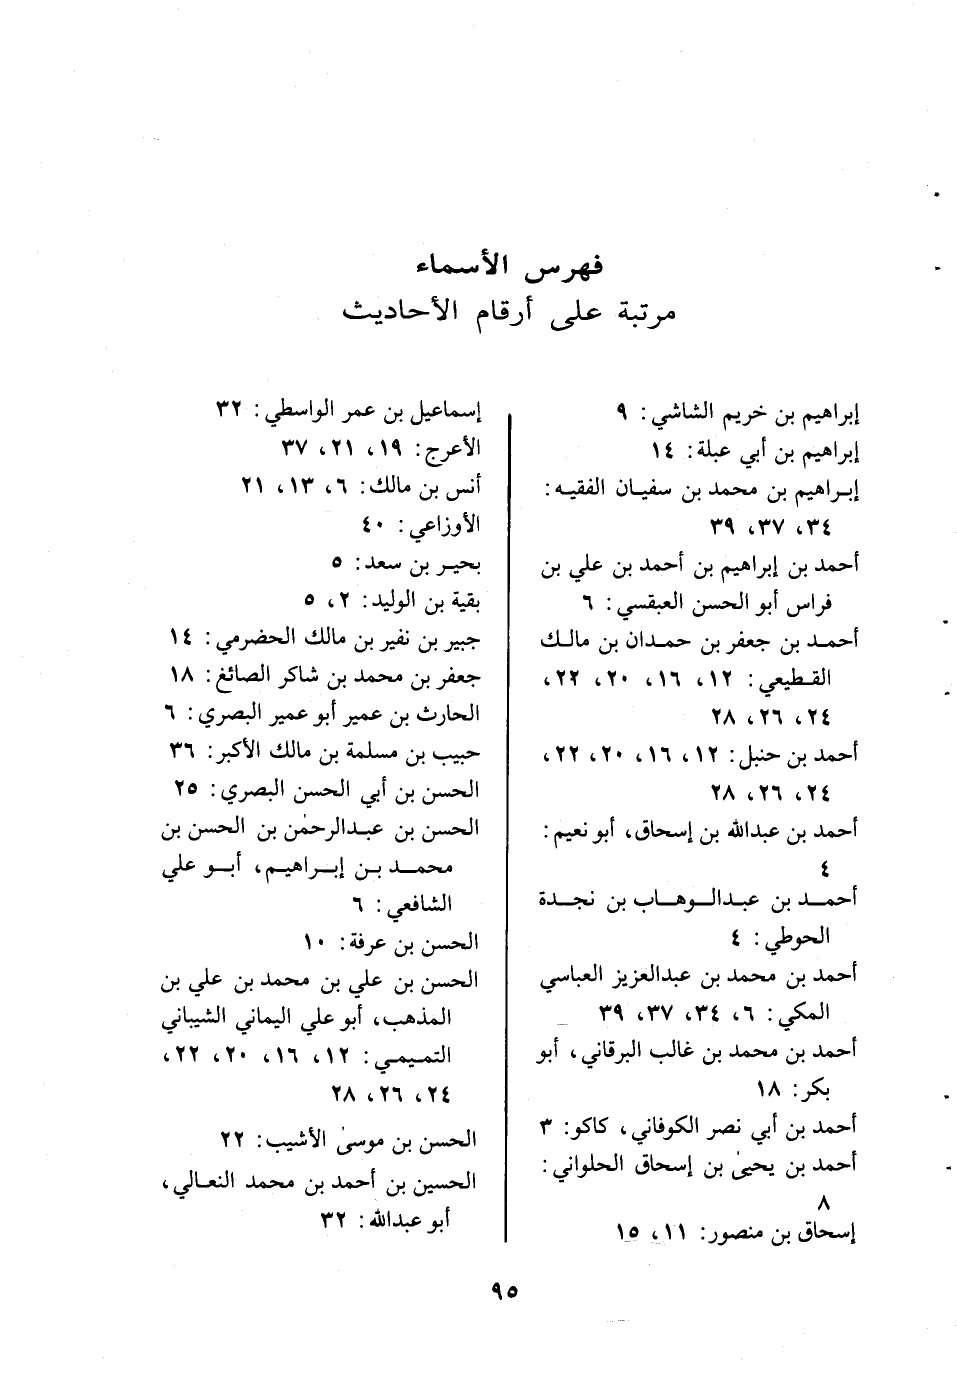 فهرس الأسماء
مرتبة على أرقام الأحاديث
إبراهيم بن خريم الشاشي: ٩
إبراهيم بن أبي عبلة: ١٤
إبراهيم بن محمد بن سفيان الفقيه:
٣٤، ٣٧، ٣٩
أحمد بن إبراهيم بن أحمد بن علي بن
فراس أبو الحسن العبقسي: ٦
أحمد بن جعفر بن حمدان بن مالك
القطيعي: ١٢، ١٦، ٢٠، ٢٢،
٢٤، ٢٦، ٢٨
أحمد بن حنبل: ١٢، ١٦، ٢٠، ٢٢،
٢٤، ٢٦، ٢٨
أحمد بن عبدالله بن إسحاق، أبو نعيم:
٤
أحمد بن عبدالوهاب بن نجدة
الحوطي: ٤
أحمد بن محمد بن عبدالعزيز العباسي
المكي: ٦، ٣٤، ٣٧، ٣٩
أحمد بن محمد بن غالب البرقاني، أبو
بكر: ١٨
أحمد بن أبي نصر الكوفاني، كاكو: ٣
أحمد بن يحيىٰ بن إسحاق الحلواني:
٨
إسحاق بن منصور: ١١، ١٥
إسماعيل بن عمر الواسطي: ٣٢
الأعرج: ١٩، ٢١، ٣٧
أنس بن مالك: ٦، ١٣، ٢١
الأوزاعي: ٤٠
بحير بن سعد: ٥
بقية بن الوليد: ٢، ٥
جبير بن نفير بن مالك الحضرمي: ١٤
جعفر بن محمد بن شاكر الصائغ: ١٨
الحارث بن عمير أبو عمير البصري: ٦
حبيب بن مسلمة بن مالك الأكبر: ٣٦
الحسن بن أبي الحسن البصري: ٢٥
الحسن بن عبدالرحمٰن بن الحسن بن
محمد بن إبراهيم، أبو علي
الشافعي: ٦
الحسن بن عرفة: ١٠
الحسن بن علي بن محمد بن علي بن
المذهب، أبو علي اليماني الشيباني
التميمي: ١٢، ١٦، ٢٠، ٢٢،
٢٤، ٢٦، ٢٨
الحسن بن موسىٰ الأشيب: ٢٢
الحسين بن أحمد بن محمد النعالي،
أبو عبدالله: ٣٢
٩٥